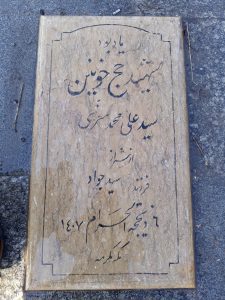 یادبود
شهید حج خونین
سید علی محمد شریفی
از شیراز
فرزند سید جواد
۶ ذیحجه الحرام ۱۴۰۷
مکه مکرمه